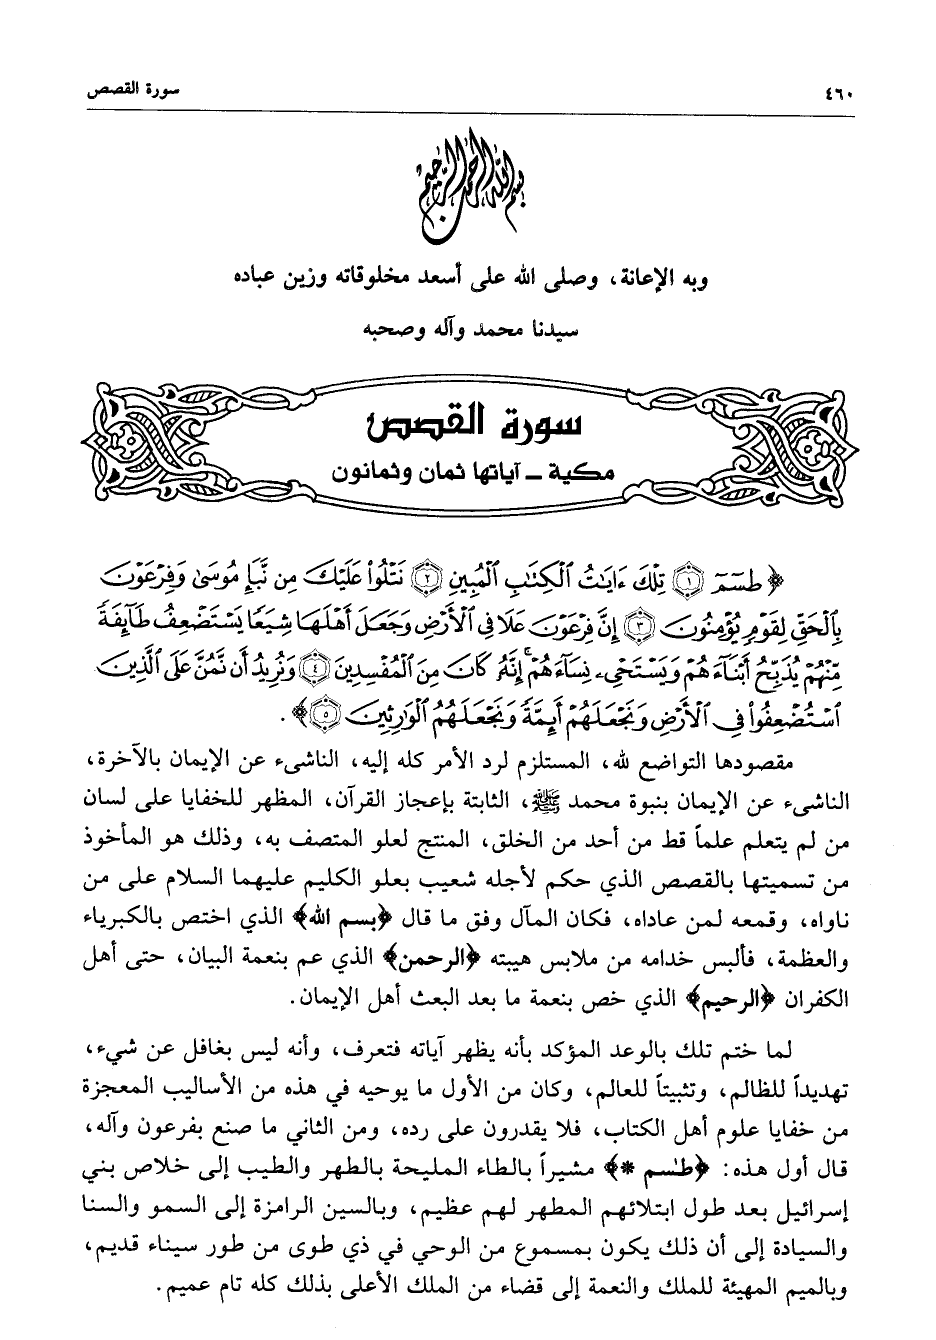 ٤٦٠ سورة القصص
بسم الله الرحمن الرحيم
وبه الإعانة، وصلى الله على أسعد مخلوقاته وزين عباده
سيدنا محمد وآله وصحبه
سورة القصص
مكية ــ آياتها ثمان وثمانون
﴿طسٓمٓ ۝١ تِلۡكَ ءَايَٰتُ ٱلۡكِتَٰبِ ٱلۡمُبِينِ ۝٢ نَتۡلُواْ عَلَيۡكَ مِن نَّبَإِ مُوسَىٰ وَفِرۡعَوۡنَ
بِٱلۡحَقِّ لِقَوۡمٖ يُؤۡمِنُونَ ۝٣ إِنَّ فِرۡعَوۡنَ عَلَا فِي ٱلۡأَرۡضِ وَجَعَلَ أَهۡلَهَا شِيَعٗا يَسۡتَضۡعِفُ طَآئِفَةٗ
مِّنۡهُمۡ يُذَبِّحُ أَبۡنَآءَهُمۡ وَيَسۡتَحۡيِۦ نِسَآءَهُمۡۚ إِنَّهُۥ كَانَ مِنَ ٱلۡمُفۡسِدِينَ ۝٤ وَنُرِيدُ أَن نَّمُنَّ عَلَى ٱلَّذِينَ
ٱسۡتُضۡعِفُواْ فِي ٱلۡأَرۡضِ وَنَجۡعَلَهُمۡ أَئِمَّةٗ وَنَجۡعَلَهُمُ ٱلۡوَٰرِثِينَ ۝٥﴾.
مقصودها التواضع لله، المستلزم لرد الأمر كله إليه، الناشىء عن الإيمان بالآخرة،
الناشىء عن الإيمان بنبوة محمد ﷺ، الثابتة بإعجاز القرآن، المظهر للخفايا على لسان
من لم يتعلم علماً قط من أحد من الخلق، المنتج لعلو المتصف به، وذلك هو المأخوذ
من تسميتها بالقصص الذي حكم لأجله شعيب بعلو الكليم عليهما السلام على من
ناواه، وقمعه لمن عاداه، فكان المآل وفق ما قال ﴿بسم الله﴾ الذي اختص بالكبرياء
والعظمة، فألبس خدامه من ملابس هيبته ﴿الرحمن﴾ الذي عم بنعمة البيان، حتى أهل
الكفران ﴿الرحيم﴾ الذي خص بنعمة ما بعد البعث أهل الإيمان.
لما ختم تلك بالوعد المؤكد بأنه يظهر آياته فتعرف، وأنه ليس بغافل عن شيء،
تهديداً للظالم، وتثبيتاً للعالم، وكان من الأول ما يوحيه في هذه من الأساليب المعجزة
من خفايا علوم أهل الكتاب، فلا يقدرون على رده، ومن الثاني ما صنع بفرعون وآله،
قال أول هذه: ﴿طسم *﴾ مشيراً بالطاء المليحة بالطهر والطيب إلى خلاص بني
إسرائيل بعد طول ابتلائهم المطهر لهم عظيم، وبالسين الرامزة إلى السمو والسنا
والسيادة إلى أن ذلك يكون بمسموع من الوحي في ذي طوى من طور سيناء قديم،
وبالميم المهيئة للملك والنعمة إلى قضاء من الملك الأعلى بذلك كله تام عميم.